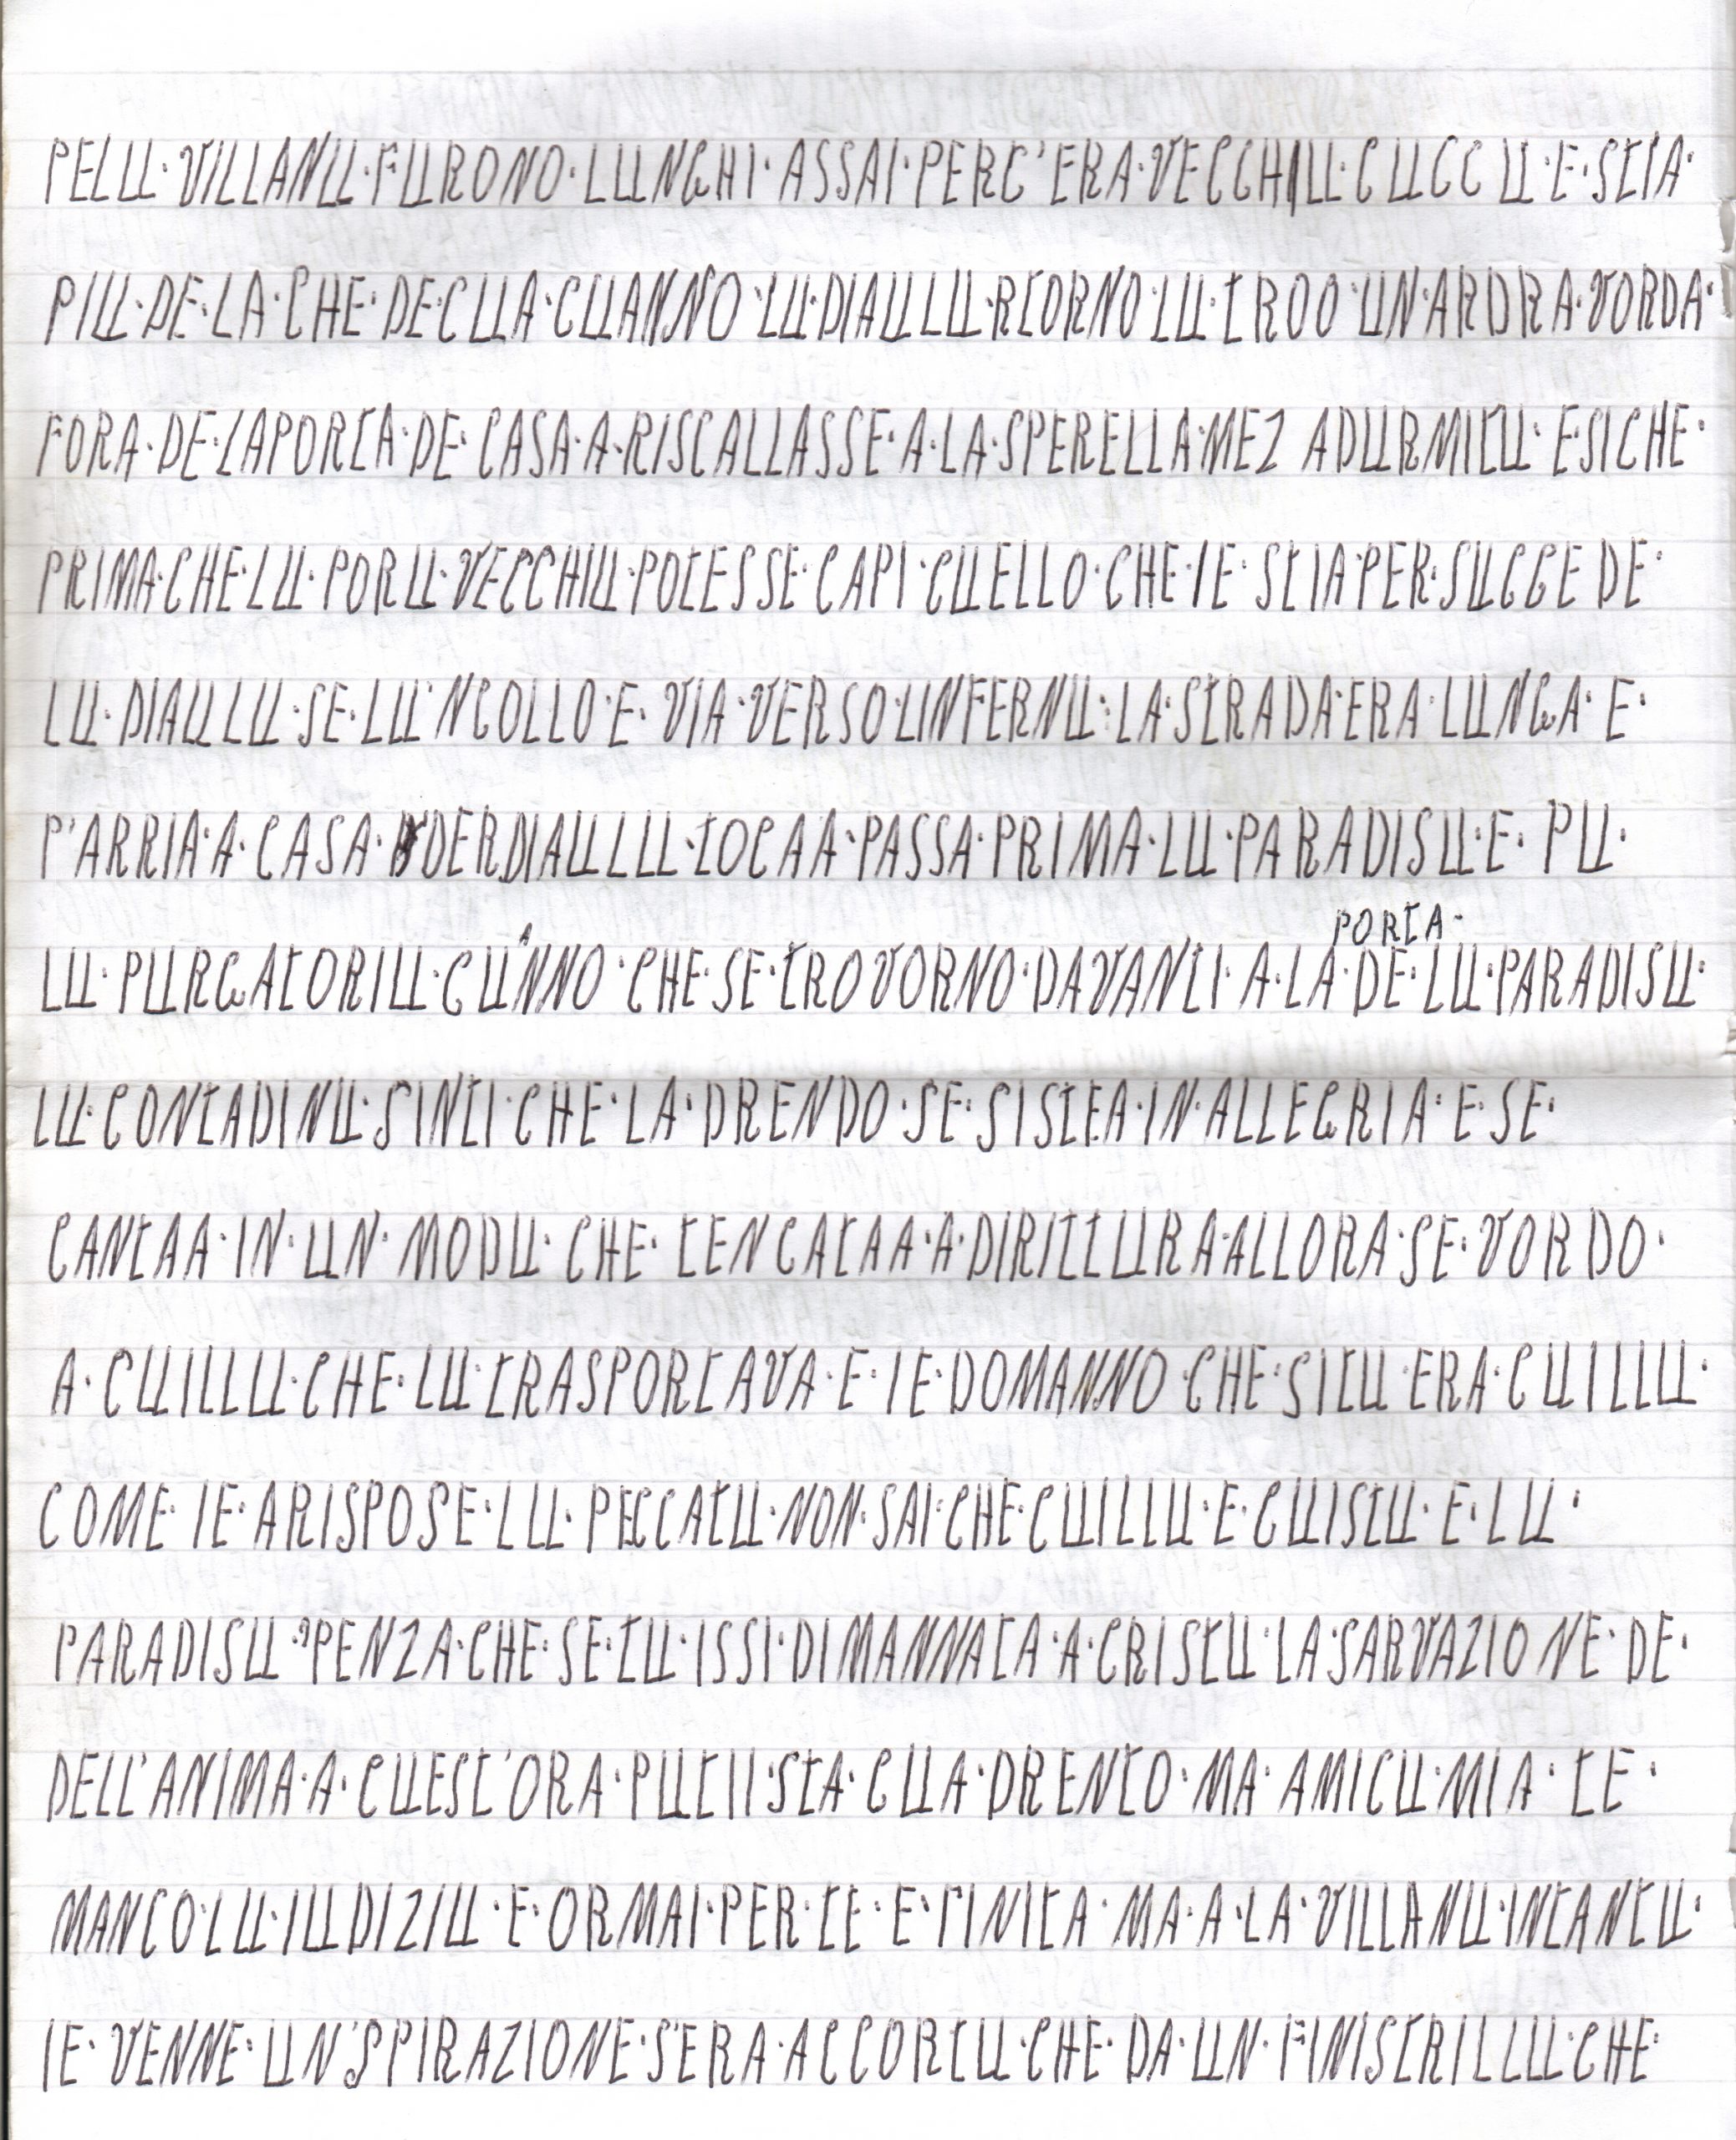 PELU·VILLANU·FURONO·LUNGHI·ASSAI·PERC'ERA·VECCHIU·CUCCU·E·STIA·
PIU·DE·LA·CHE·DE·CUA·CUANNO·LU·DIAULU·RTORNO·LU·TROO·UN·ARDRA·VORDA·
FORA·DE·LAPORTA·DE·CASA·A·RISCALLASSE·A·LA·SPERELLA·MEZ ADURMITU·E·SICHE·
PRIMA·CHE·LU·PORU·VECCHIU·POTESSE·CAPI·CUELLO·CHE·IE·STIA·PER·SUCCE DE·
LU·DIAULU·SE·LU'NCOLLO·E·VIA·VERSO·LINFERNU·LA·STRADA·ERA·LUNGA·E·
P'ARRIA·A·CASA·DERDIAULU·TOCAA·PASSA·PRIMA·LU·PARADISU·E·PU·
LU·PURGATORIU·CUANNO·CHE·SE·TROVORNO·DAVANTI·A·LA·PORTA·DE·LU·PARADISU·
LU·CONTADINU·SINTI·CHE·LA·DRENDO·SE·SISTEA·IN·ALLEGRIA·E·SE·
CANTAA·IN·UN·MODU·CHE·TENCATAA·A·DIRITTURA·ALLORA·SE·VORDO·
A·CUILLU·CHE·LU·TRASPORTAVA·E·IE·DOMANNO·CHE·SITU·ERA·CUILLU·
COME·IE·ARISPOSE·LU·PECCATU·NON·SAI·CHE·CUILLU·E·CUISTU·E·LU·
PARADISU·?PENZA·CHE·SE·TU·ISSI·DIMANNATA·A·CRISTU·LA·SARVAZIONE·DE·
DELL'ANIMA·A·CUEST'ORA·PUTII·STA·CUA·DRENTO·MA·AMICU·MIA·TE·
MANCO·LU·IUDIZIU·E·ORMAI·PER·TE·E·FINITA·MA·A·LA·VILLANU·INTANTU·
IE·VENNE·UN'SPIRAZIONE·S'ERA·ACCORTU·CHE·DA·UN·FINISTRILLU·CHE·